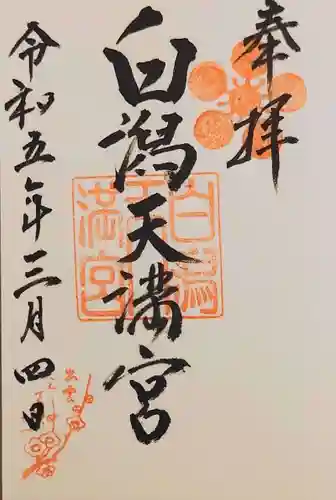 奉拝
白潟天満宮
令和五年三月四日
白潟天満宮
出雲